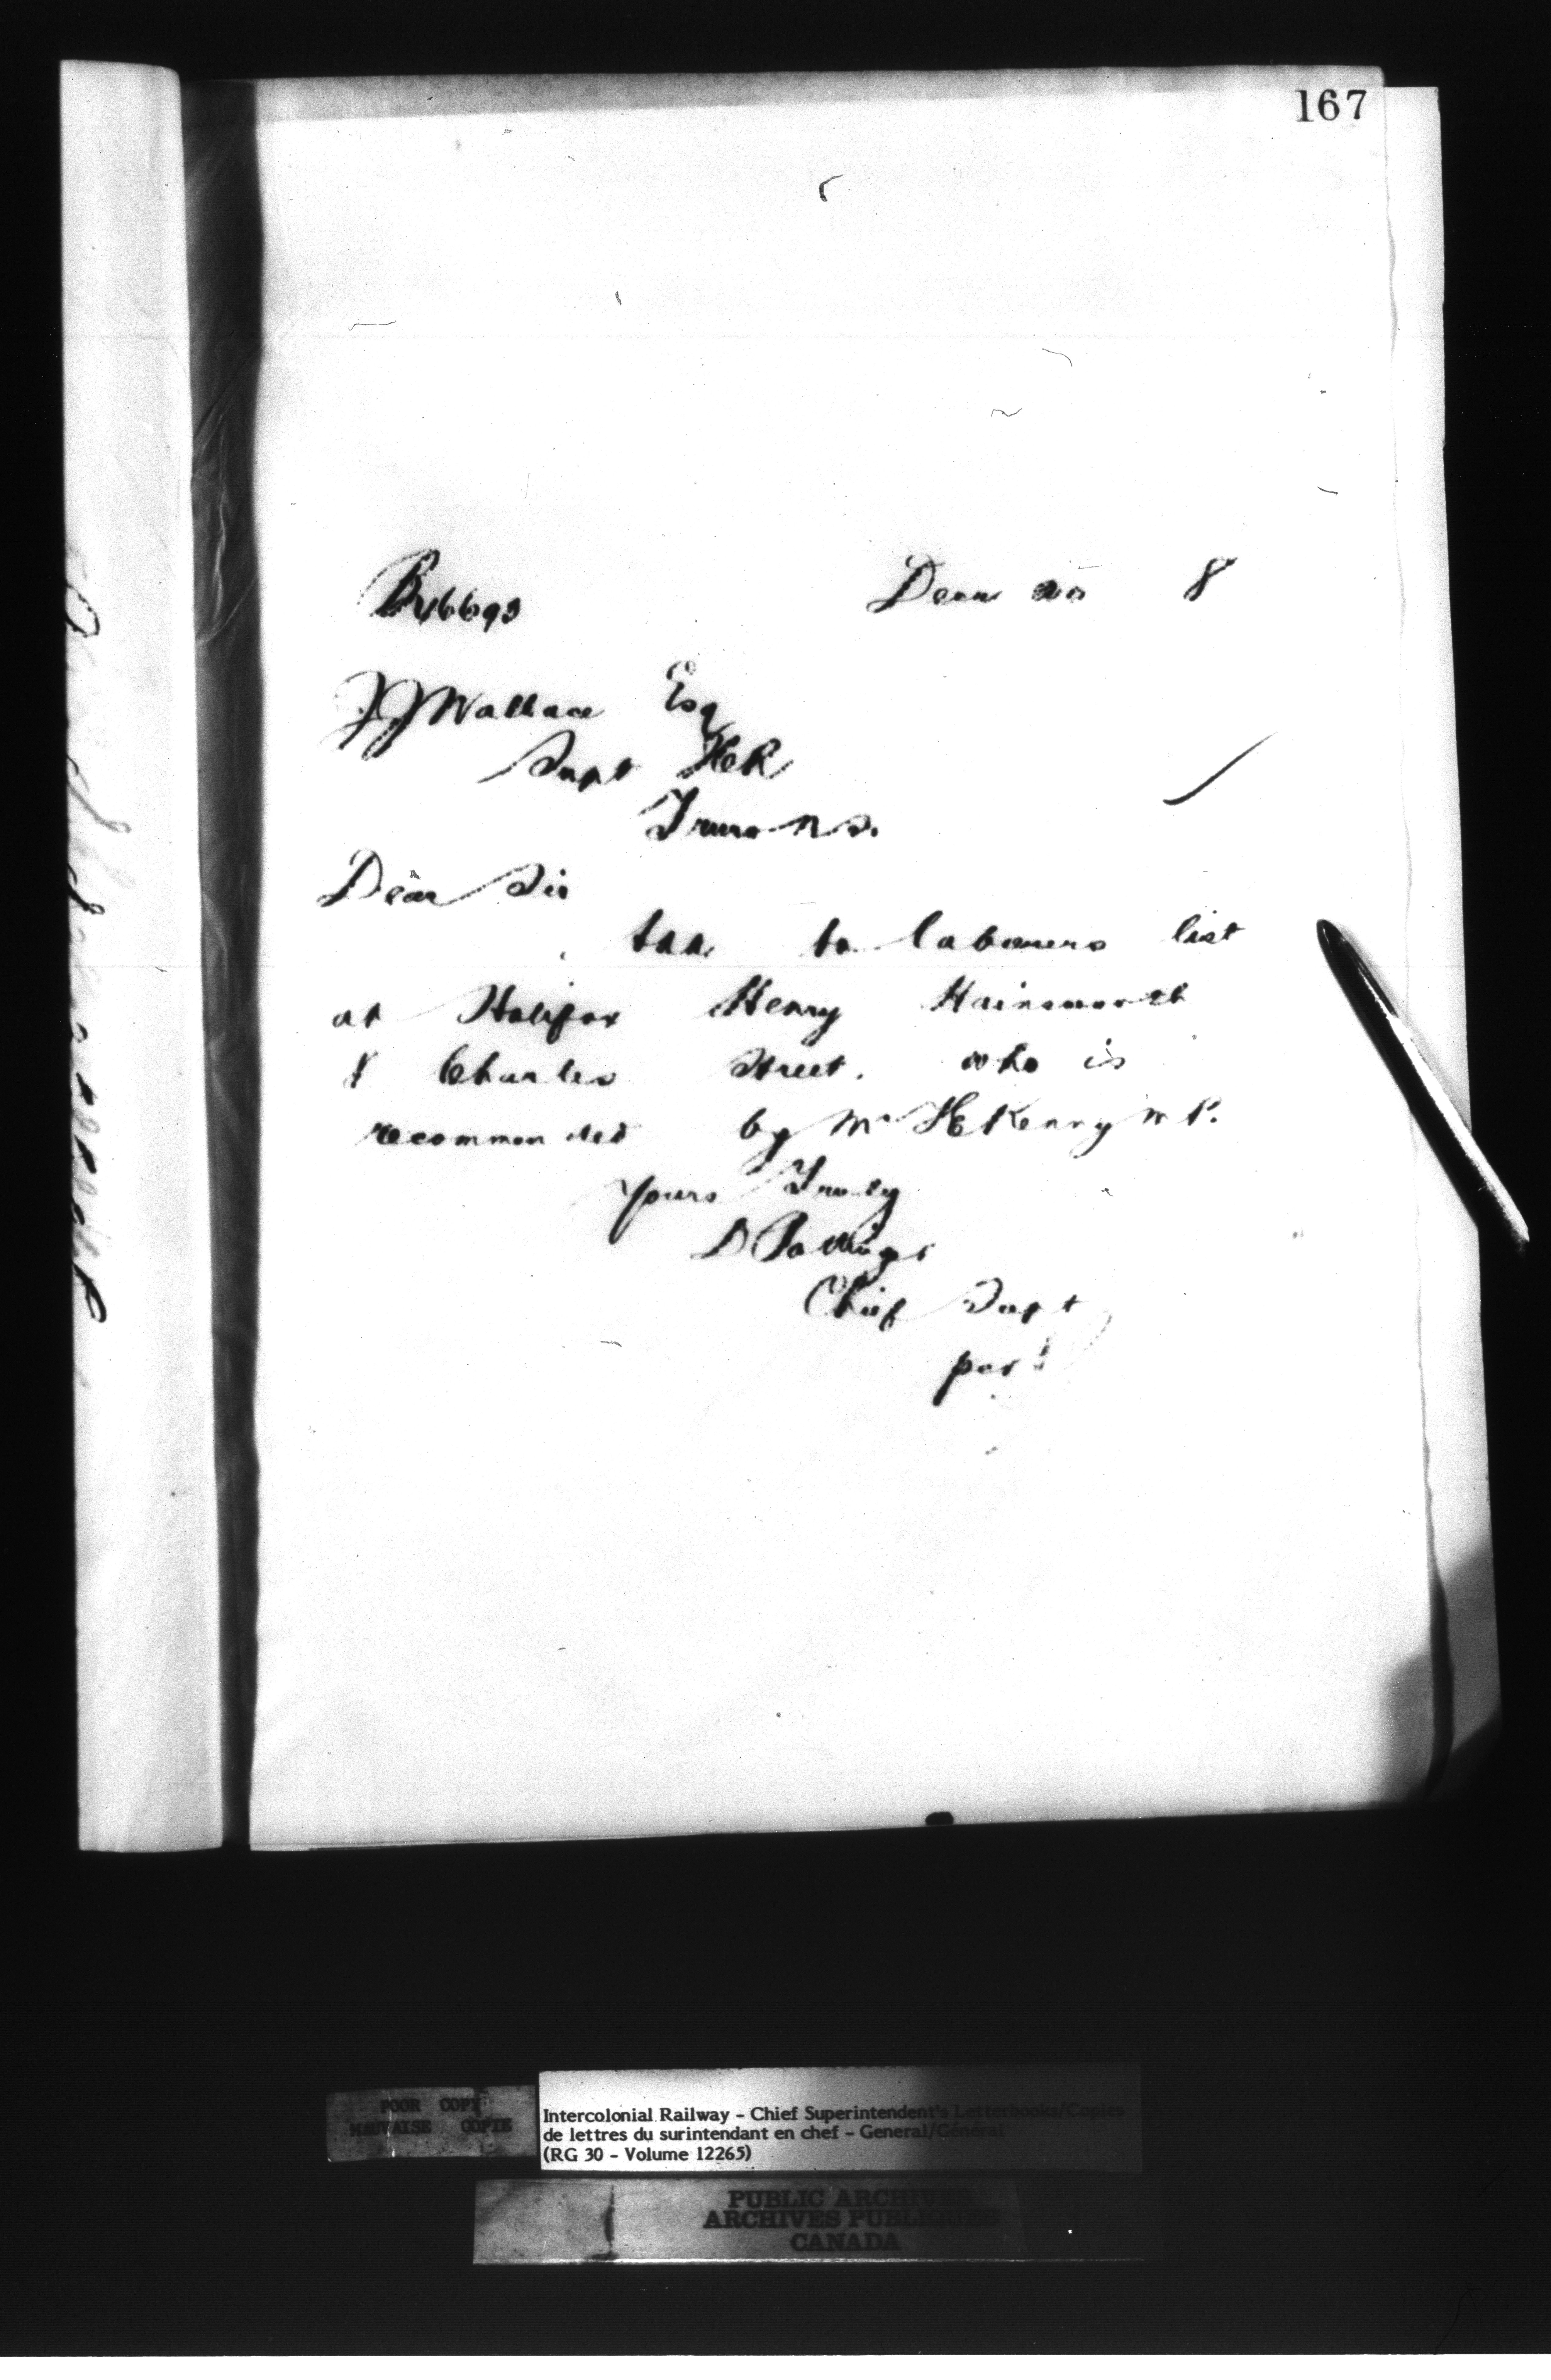 167
R46693 Decr 20 8
J J Wallace Esq
Supt ICR
Truro N S.
Dear Sir
Add to labourers list
at Halifax Henry Hainsworth
8 Charles Street. who is
recommended by Mr T E Kenny M P.
Yours Truly
D Pottinger
Chief Supt
per
POOR COPY
MAUVAISE COPIE
Intercolonial Railway - Chief Superintendent's Letterbooks/Copies
de lettres du surintendant en chef - General/Général
(RG 30 - Volume 12265)
PUBLIC ARCHIVES
ARCHIVES PUBLIQUES
CANADA